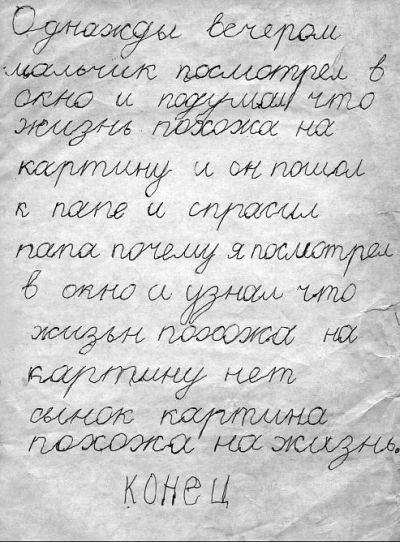 Однажды вечером
мальчик посмотрел в
окно и подумал что
жизнь похожа на
картину и он пошол
к папе и спрасил
папа почему я посмотрел
в окно и узнал что
жизьн похожа на
картину нет
сынок картина
похожа на жизнь.
конец